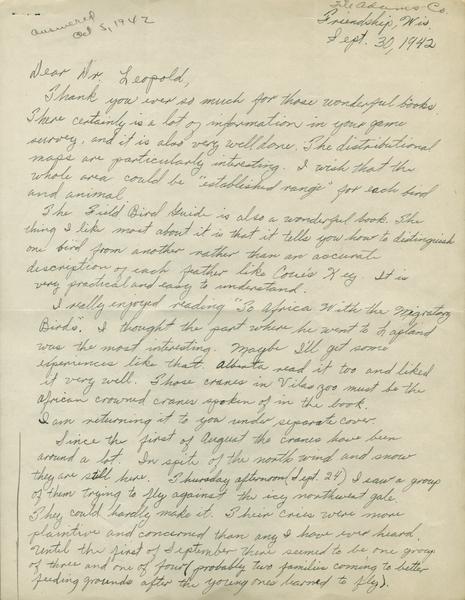 answered
Oct 5, 1942
File Adams Co.
Friendship, Wis.
Sept. 30, 1942
Dear Dr. Leopold,
Thank you ever so much for those wonderful books.
There certainly is a lot of information in your game
survey, and it is also very well done. The distributional
maps are particularly interesting. I wish that the
whole area could be "established range" for each bird
and animal.
The Field Bird Guide is also a wonderful book. The
thing I like most about it is that it tells you how to distinguish
one bird from another rather than an accurate
description of each feather like Coue's Key. It is
very practical and easy to understand.
I really enjoyed reading "To Africa With the Migratory
Birds". I thought the part where he went to Lapland
was the most interesting. Maybe I'll get some
experiences like that. Alberta read it too and liked
it very well. Those cranes in Vilas zoo must be the
African crowned cranes spoken of in the book.
I am returning it to you under separate cover.
Since the first of August the cranes have been
around a lot. In spite of the north wind and snow
they are still here. Thursday afternoon (Sept. 24) I saw a group
of them trying to fly against the icy northwest gale.
They could hardly make it. Their cries were more
plaintive and concerned than any I have ever heard.
Until the first of September there seemed to be one group
of three and one of four (probably two families coming to better
feeding grounds after the young ones learned to fly).